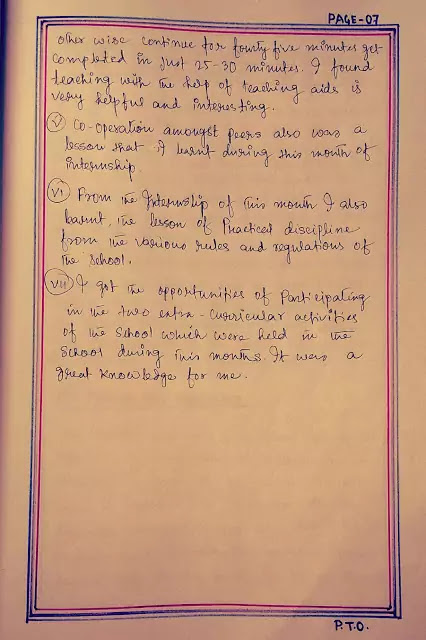 PAGE-07
other wise continue for fourty five minutes get
completed in just 25-30 minutes. I found
teaching with the help of teaching aids is
very helpful and interesting.
(V) Co-operation amongst peers also was a
lesson that I learnt during this month of
internship.
(VI) From the Internship of this month I also
learnt, the lesson of Practical discipline
from the various rules and regulations of
the School.
(VII) I got the opportunities of Participating
in the two extra-curricular activities
of the School which were held in the
School during this months. It was a
great knowledge for me.
P.T.O.